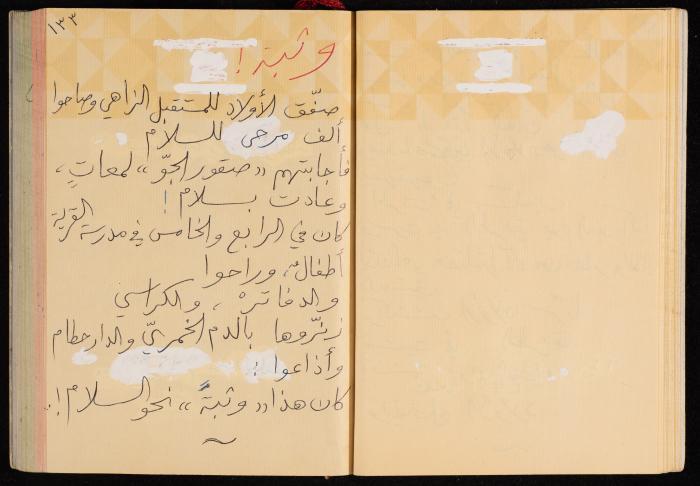 ١٣٣
وثبة!
صفّق الأولاد للمستقبل الزاهي وصاحوا
ألف مرحى للسلام
فأجابتهم «صقور الجوّ» لمعاتٍ،
وعادت بسلام!
كان في الرابع والخامس في مدرسة القرية
أطفالٌ، وراحوا
والدفاترْ، والكراسي
زنّروها بالدم الخمريّ والدار حطام
وأذاعوا:
كان هذا «وثبةً» نحو السلام!..